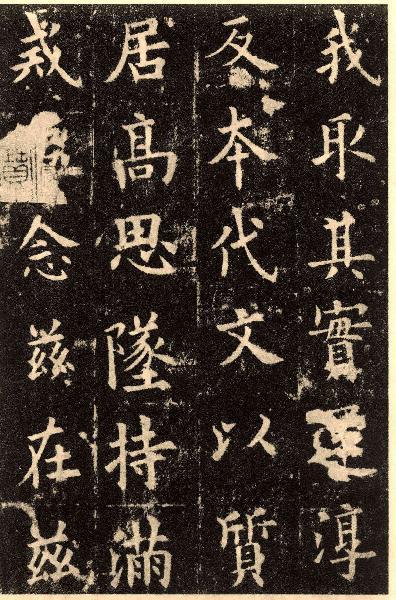 我取其實還淳
反本代文以質
居高思墜持滿
戒念茲在茲